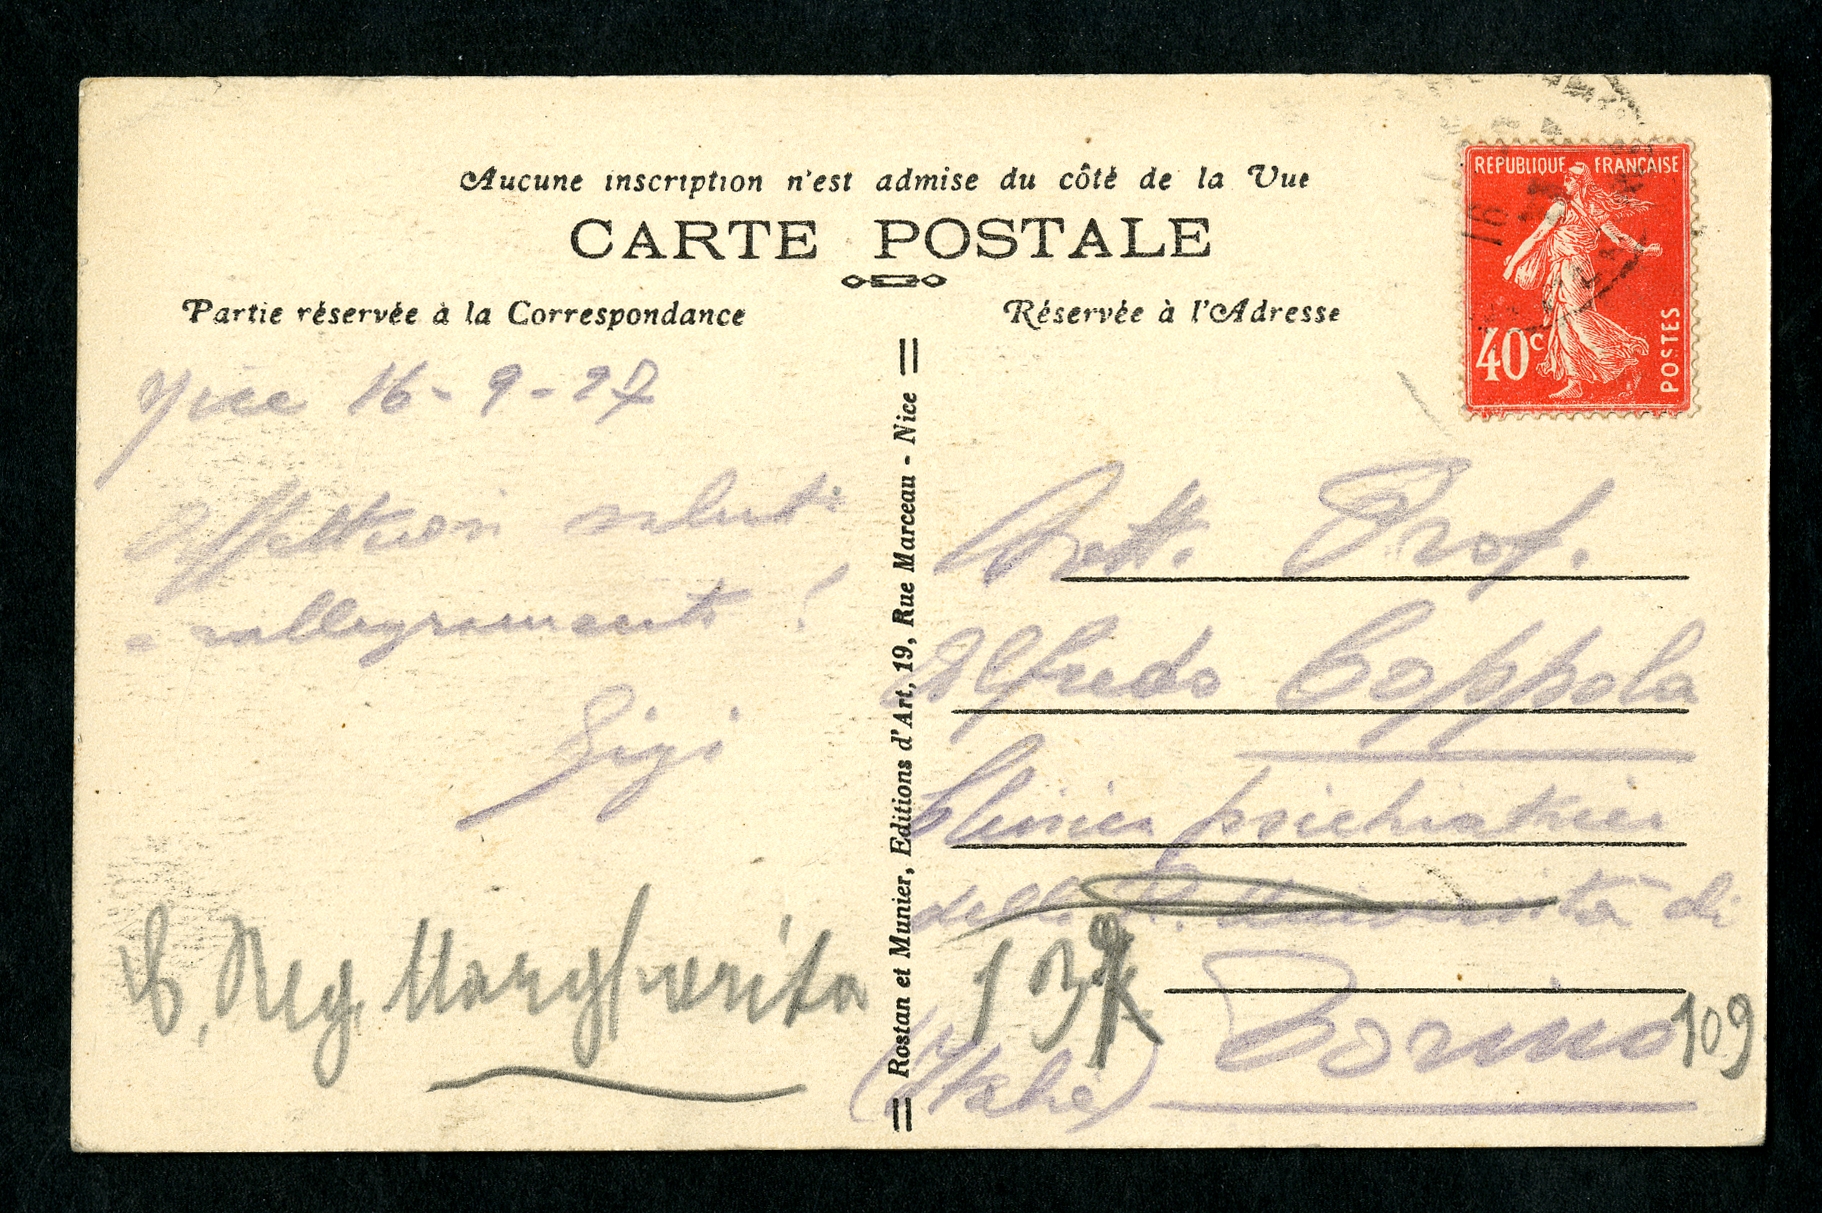 Aucune inscription n'est admise du côté de la Vue
CARTE POSTALE
Partie réservée à la Correspondance
Réservée à l'Adresse
REPUBLIQUE FRANÇAISE
40c
POSTES
16
Nice 16-9-27
Affettuosi saluti
e rallegramenti!
Gigi
Rostan et Munier, Editions d'Art, 19, Rue Marceau - Nice
Dott. Prof.
Alfredo Coppola
Clinica psichiatrica
della R. Università di
Torino
(Italie)
C. Reg. Margherita
109